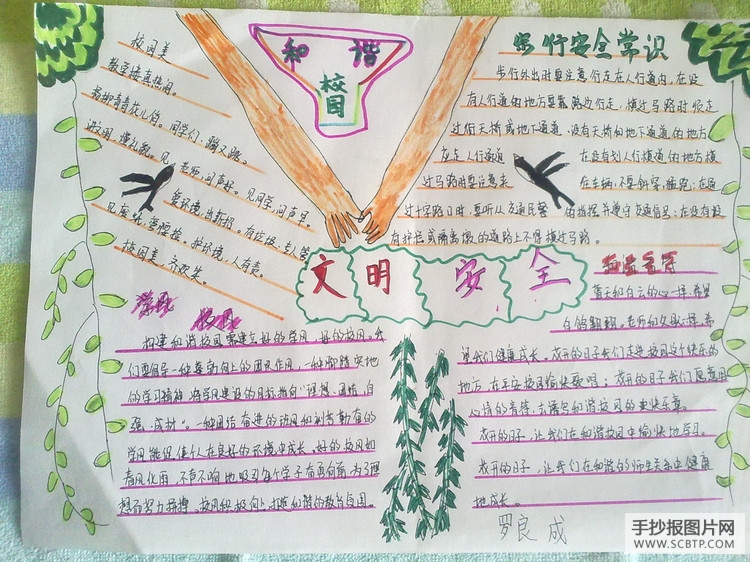 和谐
校园
校园美
教室楼真热闹。
杨柳青青花儿俏。同学们,蹦又跳。
讲文明,懂礼貌。见老师,问声好。见同学,问声早
爱环境,出新招。有垃圾,专人管
见废纸,要捡捡。护环境,人有责。
校园美,齐欢笑。
步行安全常识
步行外出时要注意行走在人行道内,在没
有人行道的地方要靠路边行走,横过马路时须走
过街天桥或地下通道,没有天桥和地下通道的地方
应走人行通道
在没有划人行横道的地方横
过马路时要注意来
往车辆,不要斜穿、猛跑;在通
过十字路口时,要听从交通民警
的指挥并遵守交通信号;在没有设
有护栏或隔离墩的道路上不得横过马路。
文明安全
学风 校风
构建和谐校园需建立好的学风、好的校风,我
们要倡导一种积极向上的团队作风,一种脚踏实地
的学习精神,将学风建设的目标指向“理想、团结、自
强、成材”。一种团结奋进的校风和刻苦勤奋的
学风能促使人在良好的环境中成长。好的校风如
春风化雨,不声不响地吸引每个学子奋勇向前,为了理
想而努力拼搏。校风积极向上,打造和谐的教育校园。
和谐老师
蓝天和白云的心一样,希望
白鸽翱翔。老师和父母心一样,希
望我们健康成长。花开的日子我们走进校园这个快乐的
地方,在平安校园给快歌唱;花开的日子我们愿意用
心情的音符,去谱写和谐校园的更快乐章。
花开的日子,让我们在和谐校园中愉快地学习。
花开的日子,让我们在和谐的师生关系中健康
地成长。
罗良成
手抄报图片网
WWW.SCBTP.COM